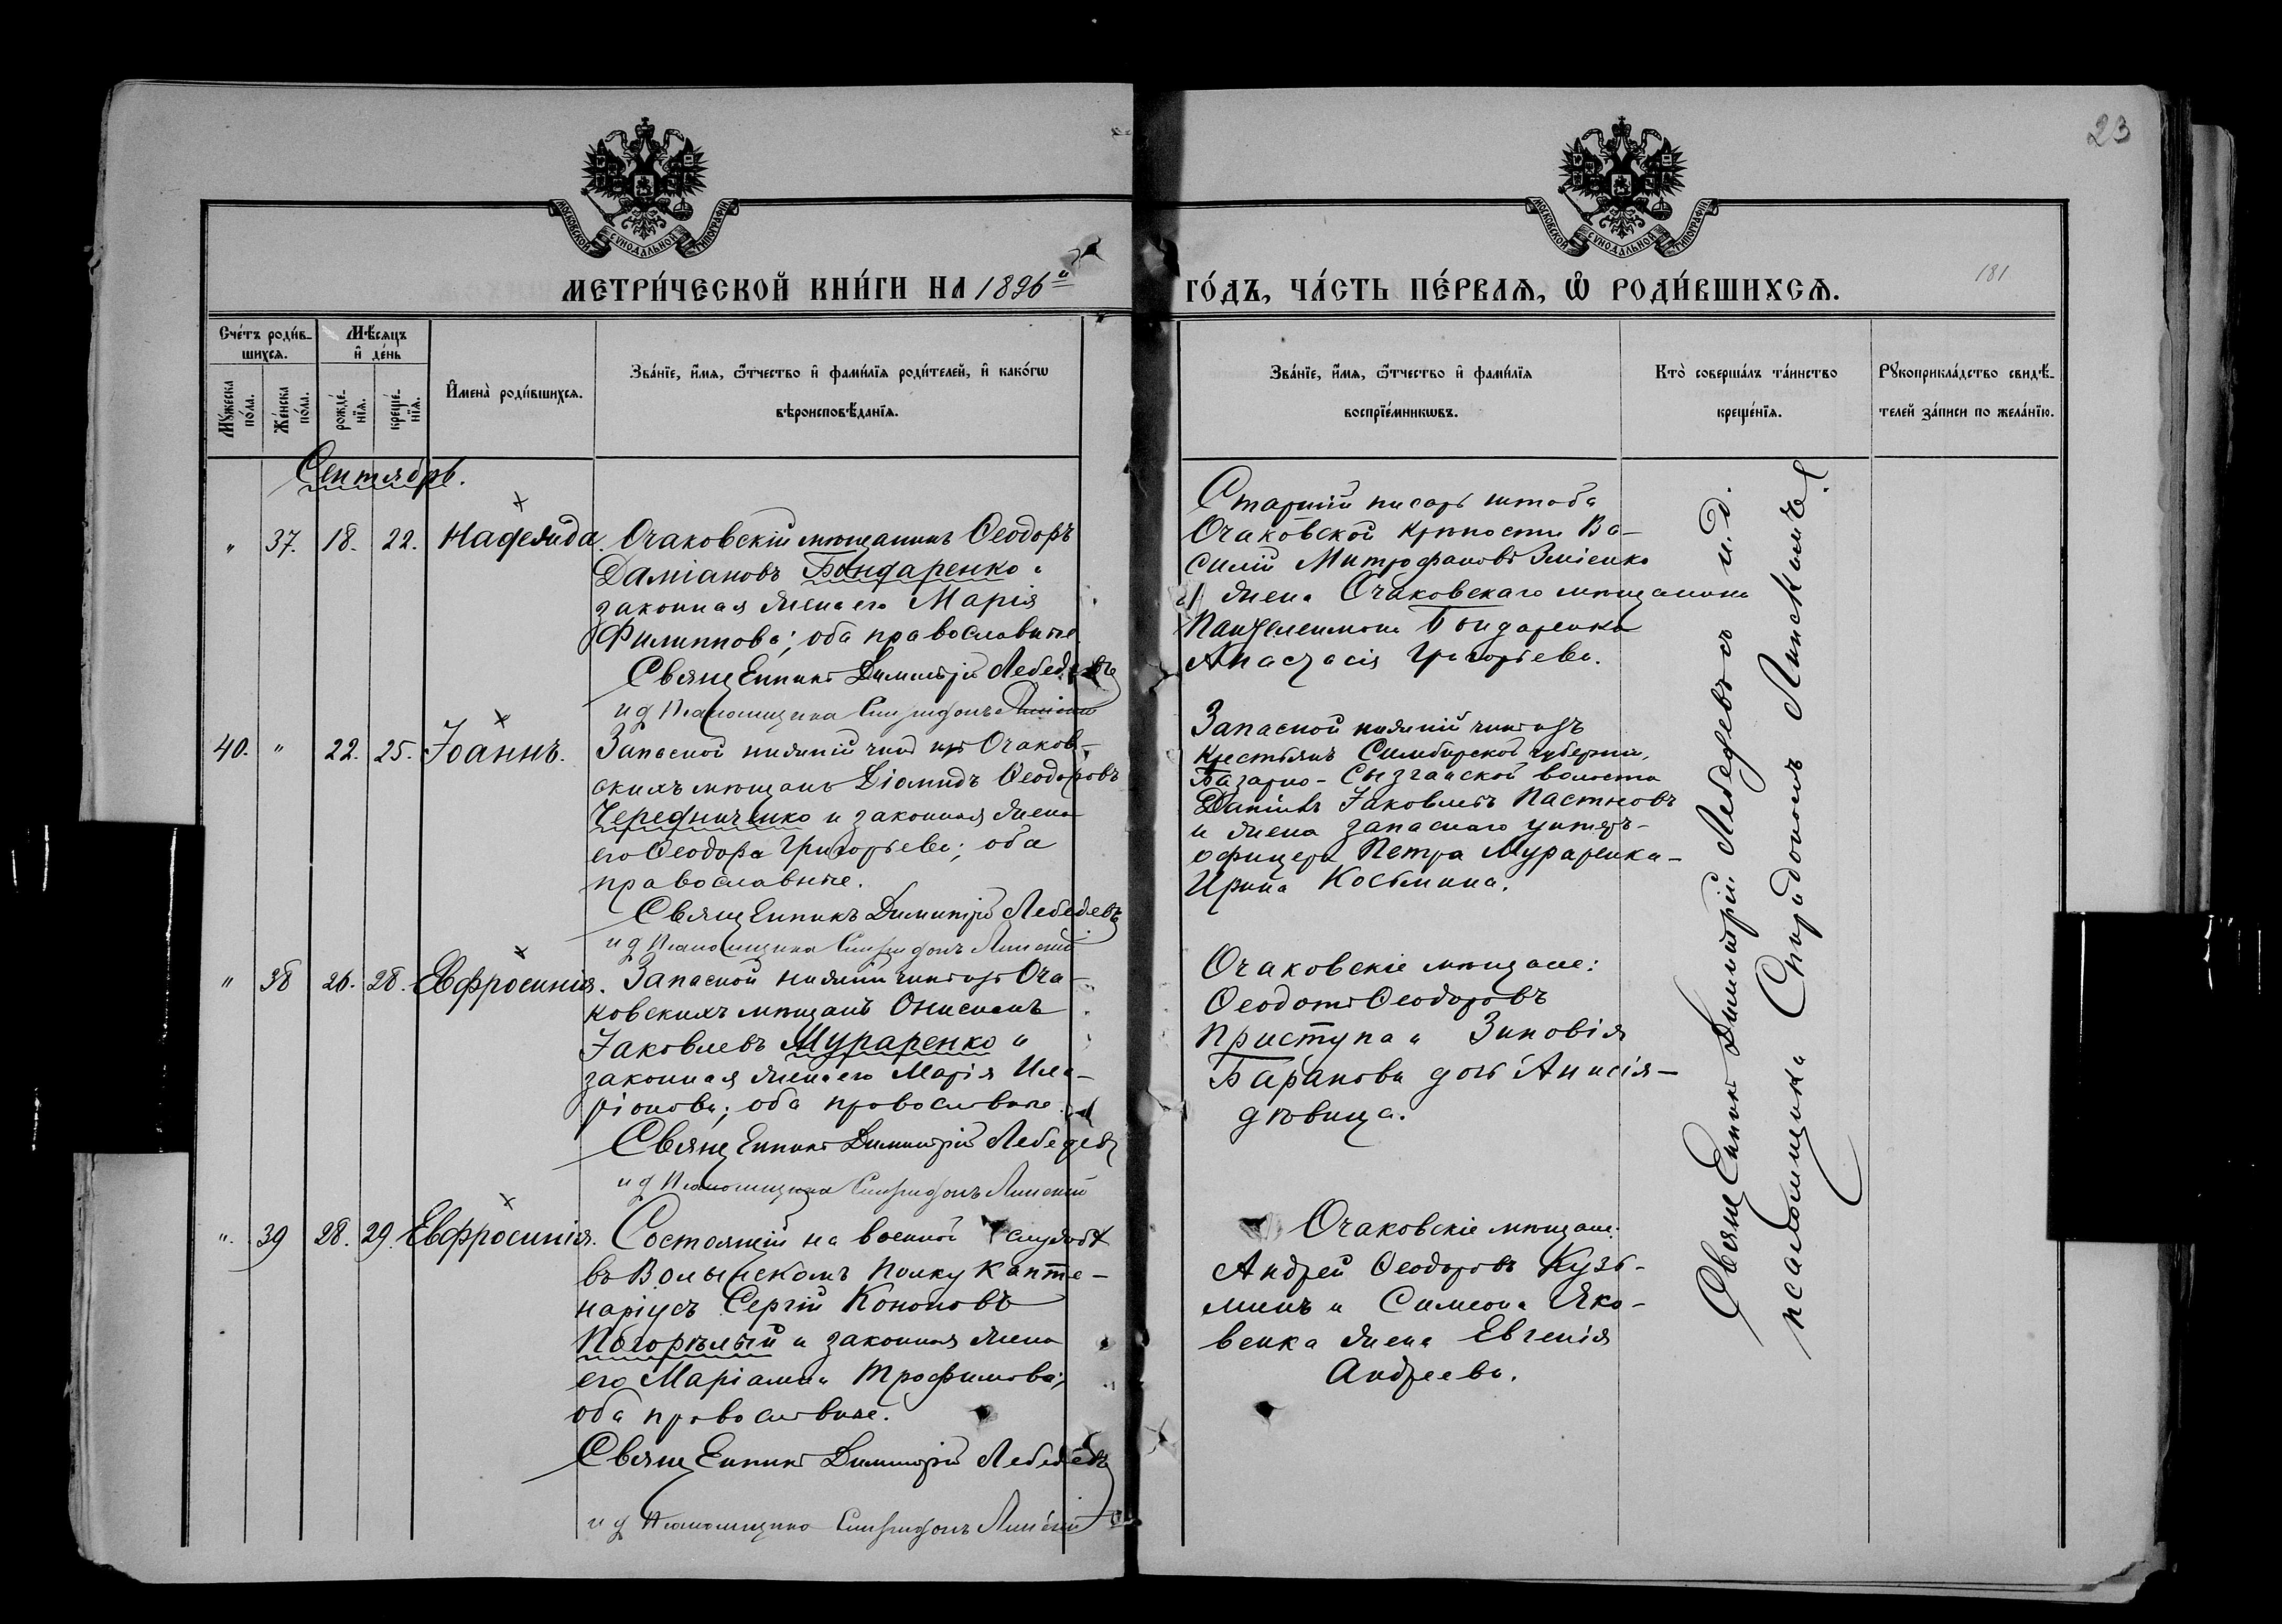 23
181
МОСКОВСКОЙ СѴНОДАЛЬНОЙ ТИПОГРАФІИ
МОСКОВСКОЙ СѴНОДАЛЬНОЙ ТИПОГРАФІИ
МЕТРИ́ЧЕСКОЙ КНИ́ГИ НА 1896 й
ГО́ДЪ, ЧА́СТЬ ПЕ́РВАѦ, Ѡ҆ РОДИ́ВШИХСѦ.
Сче́тъ роди́в-
шихсѧ.
Мѣ́сѧцъ
и҆ де́нь
Мꙋ́жеска по́ла.
Же́нска по́ла.
рожде́-нїѧ.
креще́-нїѧ.
И҆мена̀ роди́вшихсѧ.
Зва́нїе, и҆́мѧ, ѻ҆́тчество и҆ фами́лїѧ роди́телей, и҆ како́гѡ
вѣроисповѣ́данїѧ.
Зва́нїе, и҆́мѧ, ѻ҆́тчество и҆ фами́лїѧ
воспрїе́мникѡвъ.
Кто̀ соверша́лъ та́инство
креще́нїѧ.
Рꙋкоприкла́дство свидѣ́-
телей за́писи по жела́нїю.
Сентябрь.
" 37. 18. 22. Надежда. Очаковскій мѣщанинъ Ѳеодоръ
Даміановъ Бондаренко и
законная жена его Марія
Филиппова; оба православные.
Священникъ Димитрій Лебедевъ
и д псаломщика Спиридонъ Линскій
Старшій писарь штаба
Очаковской крѣпости Ва-
силій Митрофановъ Зміенко
и жена Очаковскаго мѣщанина
Пантелеимона Бондаренка
Анастасія Григорьева.
40. " 22. 25. Іоаннъ. Запасной нижній чинъ изъ Очаков-
скихъ мѣщанъ Діомидъ Ѳеодоровъ
Чередниченко и законная жена
его Ѳеодора Григорьева; оба
православные.
Священникъ Димитрій Лебедевъ
и д псаломщика Спиридонъ Линскій
Запасной нижній чинъ изъ
крестьянъ Симбирской губерніи,
Базарно-Сызганской волости
Даніилъ Іаковлевъ Пастновъ
и жена запаснаго унтеръ-
офицера Петра Мураренка-
Ирина Косьмина.
" 38 26. 28. Евфросинія. Запасной нижній чинъ изъ Оча-
ковскихъ мѣщанъ Онисимъ
Іаковлевъ Мураренко и
законная жена его Марія Ила-
ріонова; оба православные.
Священникъ Димитрій Лебедевъ
и д псаломщика Спиридонъ Линскій
Очаковскіе мѣщане:
Ѳеодотъ Ѳеодоровъ
Приступа и Зиновія
Баранова дочь Анисія-
дѣвица.
" 39 28. 29. Евфросинія. Состоящій на военной службѣ
въ Волынскомъ полку капте-
наріусъ Сергій Кононовъ
Погорѣлый и законная жена
его Маріамна Трофимова;
оба православные.
Священникъ Димитрій Лебедевъ
и д псаломщика Спиридонъ Линскій
Очаковскіе мѣщане:
Андрей Ѳеодоровъ Кузь-
минъ и Симеона Яко-
венка жена Евгенія
Андреева.
Священникъ Димитрій Лебедевъ съ и. д.
псаломщика Спиридономъ Линскимъ